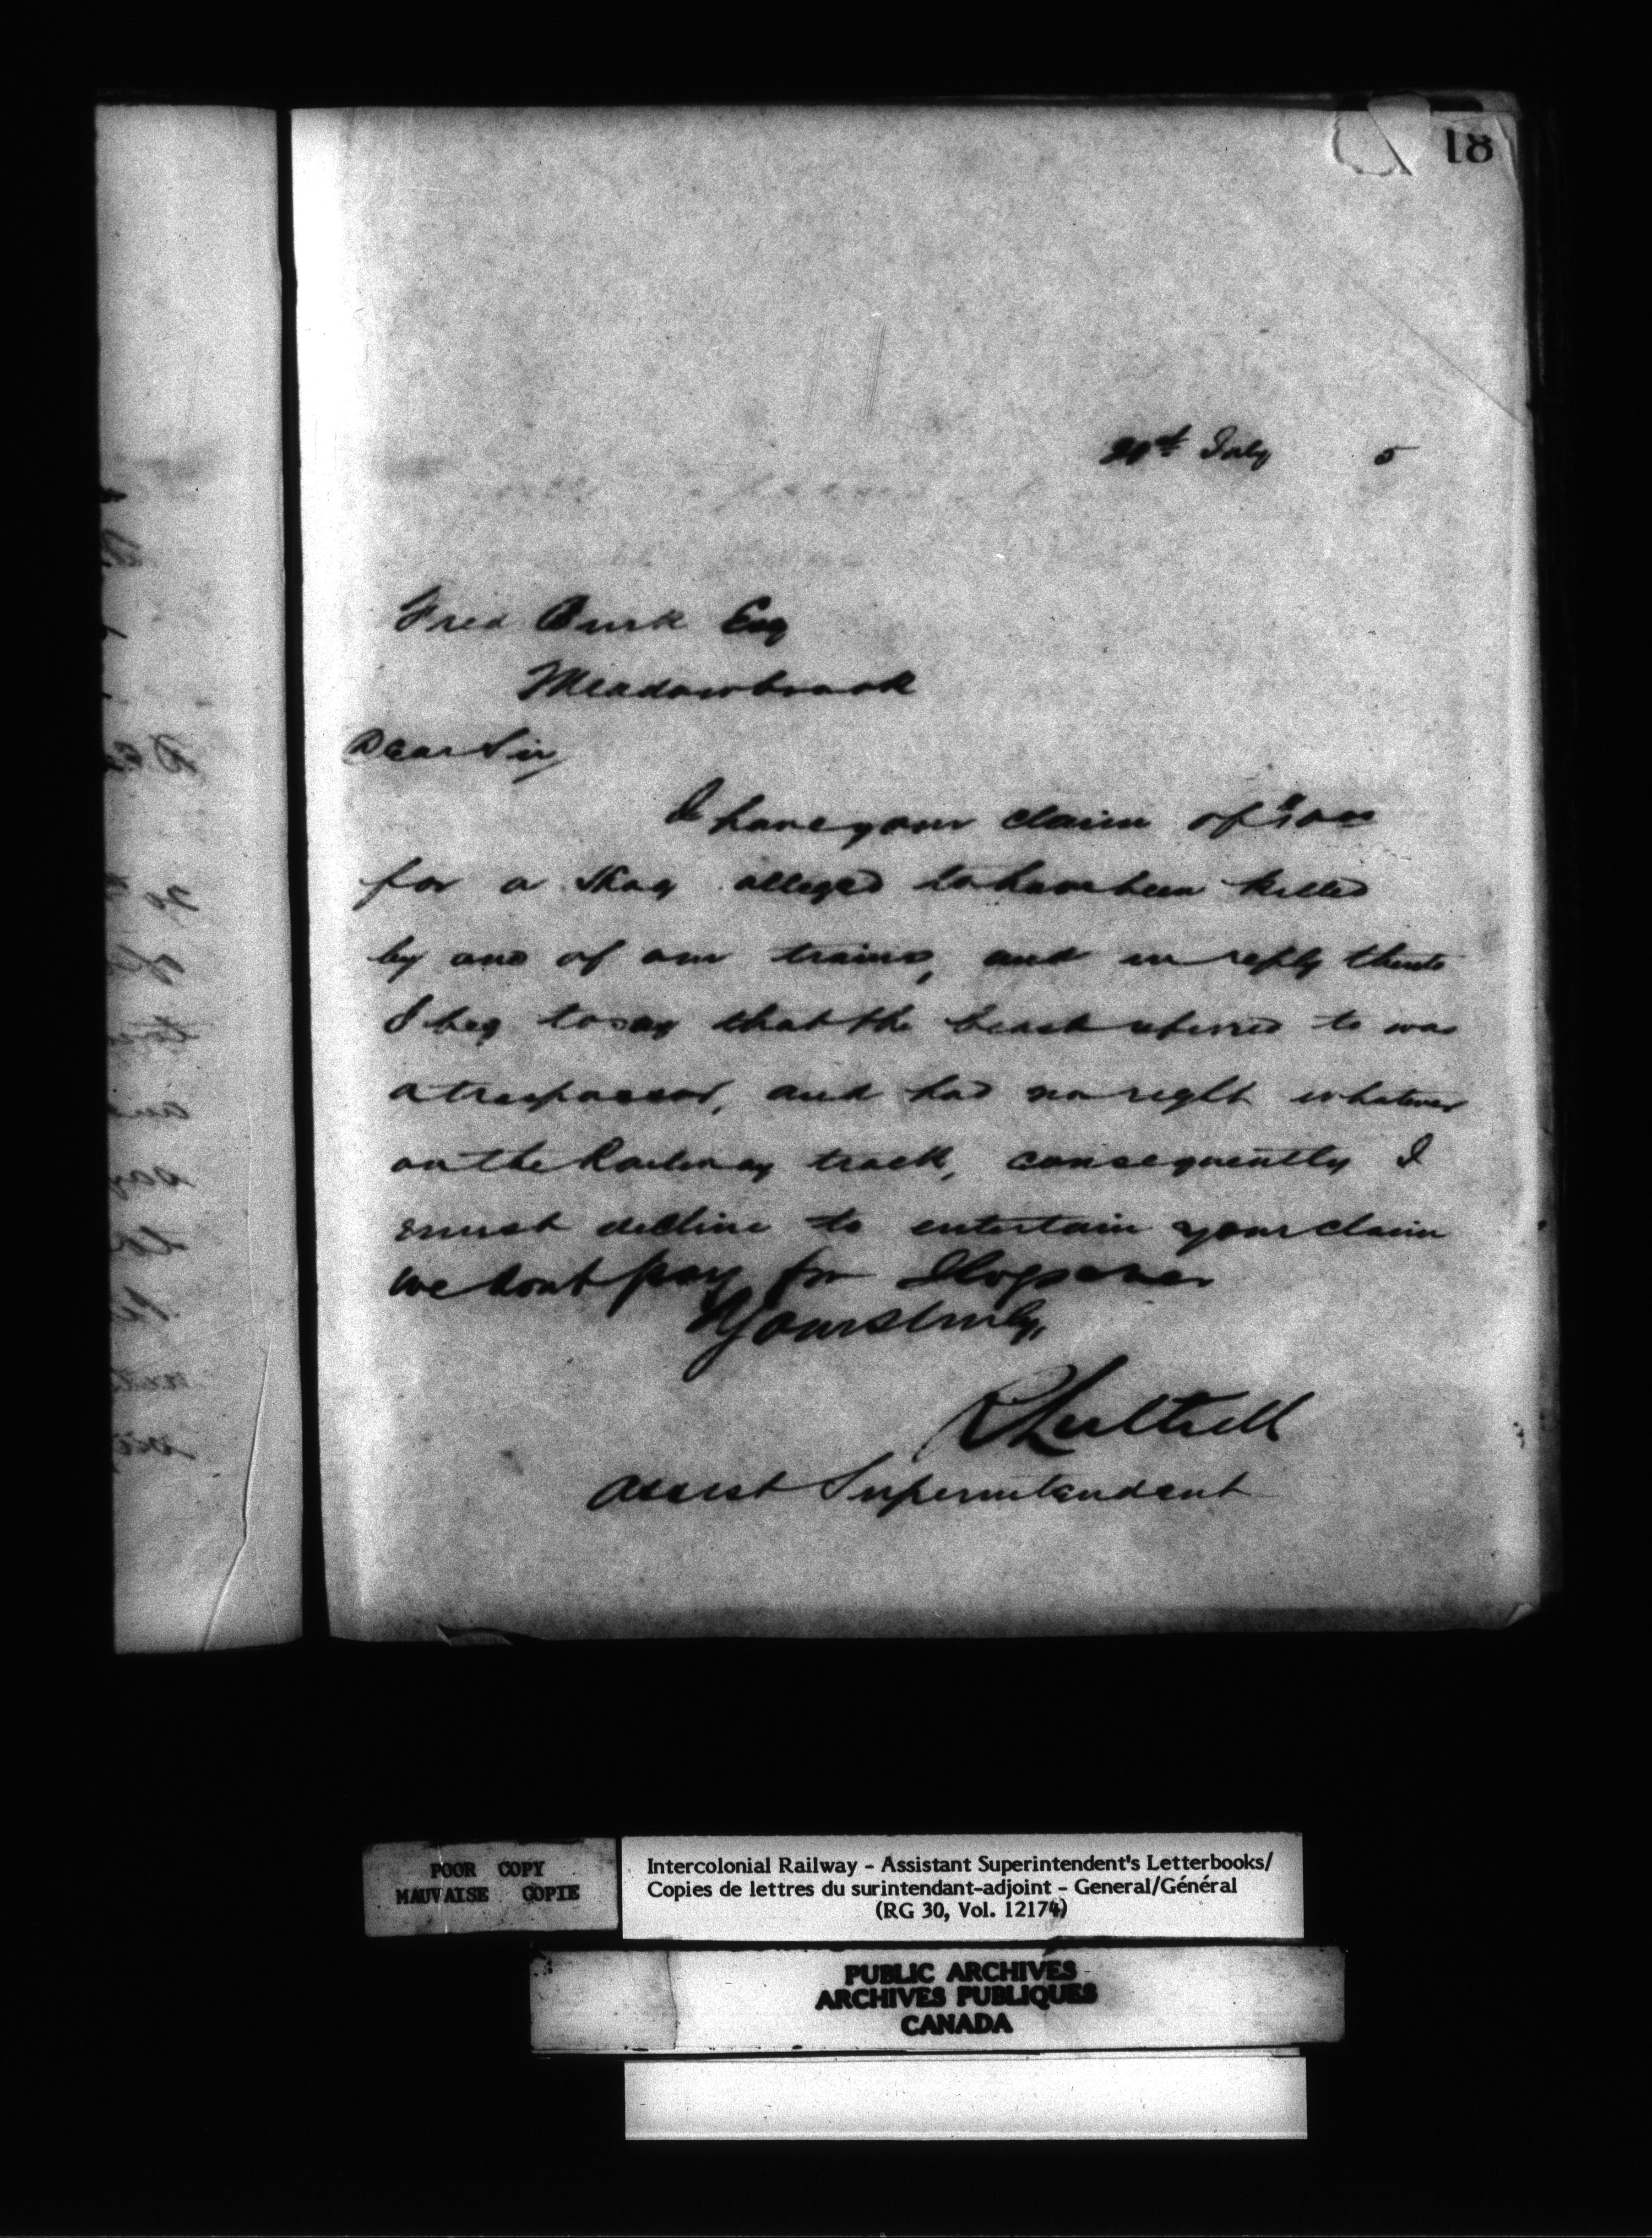 18
21st July 5
Fred Burk Esq
Meadowbrook
Dear Sir,
I have your claim of
for a Hog alleged to have been killed
by one of our trains, and in reply thereto
I beg to say that the beast referred to was
a trespasser, and had no right whatever
on the Railway track, consequently I
must decline to entertain your claim
We dont pay for Hogs ever
Yours truly,
R Luttrell
Assist Superintendent
POOR COPY
MAUVAISE COPIE
Intercolonial Railway - Assistant Superintendent's Letterbooks/
Copies de lettres du surintendant-adjoint - General/Général
(RG 30, Vol. 12174)
PUBLIC ARCHIVES
ARCHIVES PUBLIQUES
CANADA